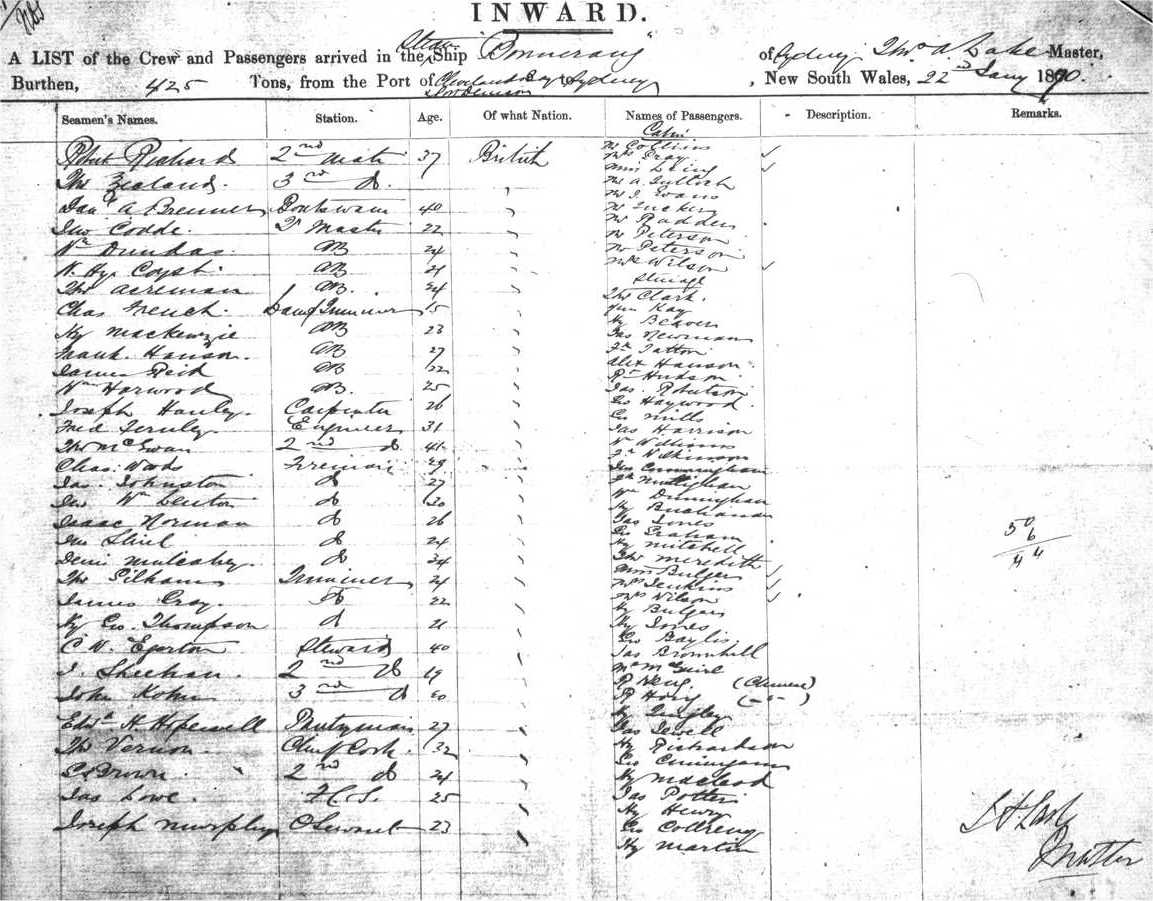 INWARD.
A LIST of the Crew and Passengers arrived in the Ship "Boomerang" of Sydney, Thos A. Lake Master,
Burthen, 425 Tons, from the Port of Cleveland Bay to Sydney, New South Wales, 22 Jany 1870.
Seamen's Names. Station. Age. Of what Nation. Names of Passengers. Description. Remarks.
Cabin
Robert Richard 2nd Mate 37 British Mr Collins
Mrs Gray
Thos Zealand. 3rd do Miss
Mr A. Tulloch
Mr J. Evans
A Brenner Boatswain 40 Mr Tucker
Jno Codde. Qr Master 22 Mr Radden
Mr Peterson
Wm Dundas. AB 24 Mr Peterson
W. Hy. AB 21 Mrs Wilson
Steerage
Thos Acreman AB. 24 Thos Clark.
Chas French. Lamp Trimmer 15 Kay
Hy Mackenzie AB 23 Hy Beaven
Jas Newman
Frank. Hanson. AB 27 Tatton
James Reid AB 22 Alex Hanson
Wm Harwood AB. 25 Rt Hudson
Jas. Robertson
Joseph Hanley. Carpenter 26 Geo Haywood.
Fred Fernley Engineer 31 Geo Mills
Jas Harrison
Thos McEwan 2nd do 41 Wm Williams
Wilkinson
Chas. Wads Fireman 29 Jno Cunningham
Jas. Johnston do 27 Mullighan
Jno Wm Lenton do 30 Wm Dunningham
Hy Buchanan
Isaac Norman do 26 Jas Jones
Jno do 24 Geo Graham
Hy Mitchell
Denis Mulcahey. do 34 Thos Meredith
Thos Pilham Trimmer 21 Miss Bulger
Mrs Jenkins
James Cray. do 22 Mrs Wilson
Hy Bulger
Hy Geo. Thompson do 21 Hy Jones
Geo Baylis.
C W. Egerton Steward 40 Jas Bromhill
J. Sheehan. 2nd do 19 Mr McGuire
(Chinese)
John Kohn 3rd do 20 Hong ( - " - )
Hy Quigley
Edwd H Hopewell Pantryman 27 Jas Sewell
Thos Vernon. Chief Cook. 32 Hy Richardson
Geo Cunningham
C Brown. 2nd do 24 Hy Macleod
Jas Lowe. F.C.S. 25 Jas Potter
Hy Henry
Joseph Murphy O Servant 23 Geo
Hy Martin
50
6
44
Master